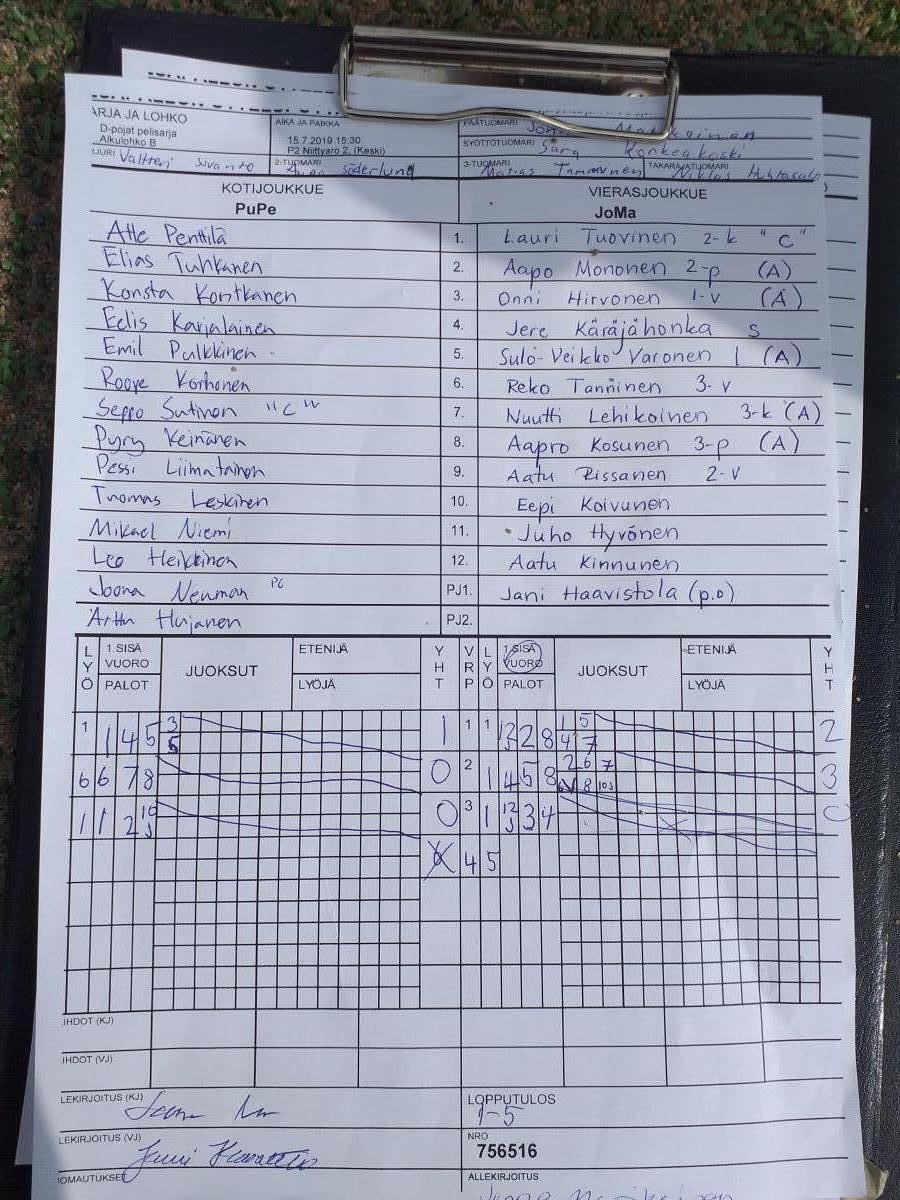 ARJA JA LOHKO
D-pojat pelisarja
Alkulohko B
AIKA JA PAIKKA
15.7.2019 15:30
P2 Niittyaro 2, (Keski)
PÄÄTUOMARI
SYÖTTÖTUOMARI Sara Konkeakoski
UURI Valtteri Suvanto
2-TUOMARI Söderlund
3-TUOMARI Matias Tamminen
TAKARAJATUOMARI Niklas
KOTIJOUKKUE
PuPe
VIERASJOUKKUE
JoMa
Atte Penttilä 1. Lauri Tuovinen 2-k "C"
Elias Tuhkanen 2. Aapo Mononen 2-p (A)
Konsta Kontkanen 3. Onni Hirvonen 1-v (A)
Eelis Karjalainen 4. Jere Käräjähonka s
Emil Pulkkinen 5. Sulo-Veikko Varonen 1 (A)
Roope Korhonen 6. Reko Tanninen 3-v
Seppo Sutinen "C" 7. Nuutti Lehikoinen 3-k (A)
Pyry Keinänen 8. Aapro Kosunen 3-p (A)
Pessi Liimatainen 9. Aatu Rissanen 2-v
Tuomas Leskinen 10. Eepi Koivunen
Mikael Niemi 11. Juho Hyvönen
Leo Heikkinen 12. Aatu Kinnunen
Joona Neuman PC PJ1. Jani Haavistola (p.o)
Arttu Hujanen PJ2.
LYÖ 1.SISÄ VUORO PALOT JUOKSUT ETENIJÄ LYÖJÄ YHT VRP LYÖ 1.SISÄ VUORO PALOT JUOKSUT ETENIJÄ LYÖJÄ YHT
1 1 4 5 3 5 1 1 1 3 2 8 1 5 4 7 2
6 6 7 8 0 2 1 4 5 8 2 6 7 8 10J 3
1 1 2 0 3 1 3 4 0
X 4 5
IHDOT (KJ)
IHDOT (VJ)
LEKIRJOITUS (KJ)
LOPPUTULOS
1-5
LEKIRJOITUS (VJ)
NRO
756516
IOMAUTUKSET
ALLEKIRJOITUS